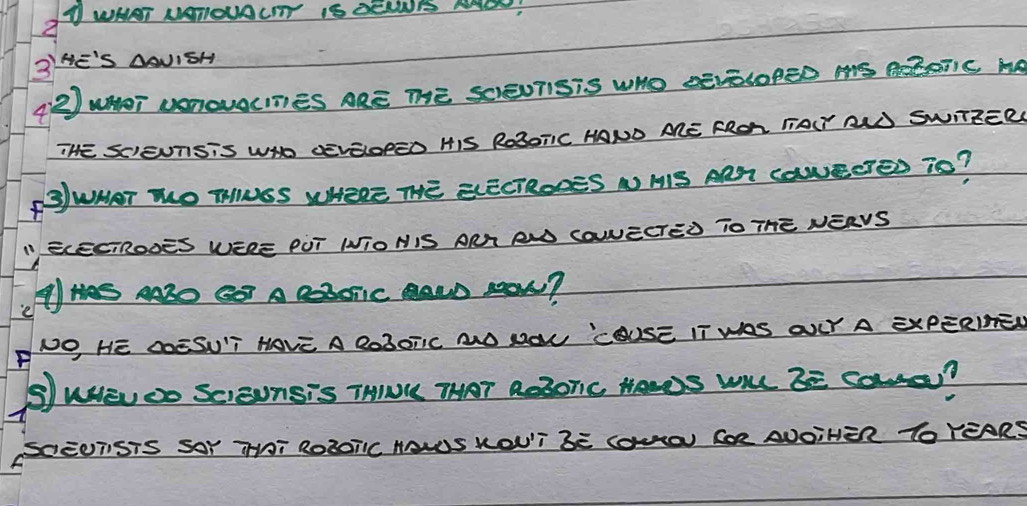 2 1) WHAT NATIONALITY IS DENNIS AABO?
3) HE'S DANISH
4 2) WHAT NATIONALITIES ARE THE SCIENTISTS WHO DEVELOPED HIS ROBOTIC HA
THE SCIENTISTS WHO DEVELOPED HIS ROBOTIC HAND ARE FROM ITALY AND SWITZERL
F 3) WHAT TWO THINGS WHERE THE ELECTRODES IN HIS ARM CONNECTED TO?
ELECTRODES WERE PUT INTO HIS ARM AND CONNECTED TO THE NERVS
4) HAS AABO GOT A ROBOTIC HAND NOW?
F NO, HE DOESN'T HAVE A ROBOTIC AND NOW 'CAUSE IT WAS ONLY A EXPERIMEN
1 5) WHEN DO SCIENTISTS THINK THAT ROBOTIC HANDS WILL BE COMMON?
SCIENTISTS SAY THAT ROBOTIC HANDS WON'T BE COMMON FOR ANOTHER 10 YEARS